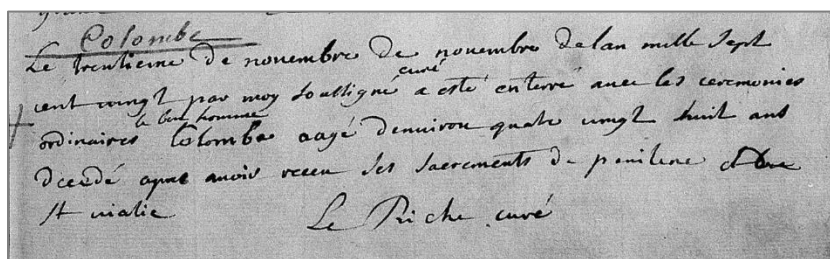 Colombe
Le trentieme de novembre de novembre delan mille sept
curé
cent vingt par moy soussigné a esté enterré avec les ceremonies
le bon homme
ordinaires Colombe aagé denviron quatre vingt huit ans
decedé apres avoir receu les sacrements de penitence et de
st viatic
Le Riche curé